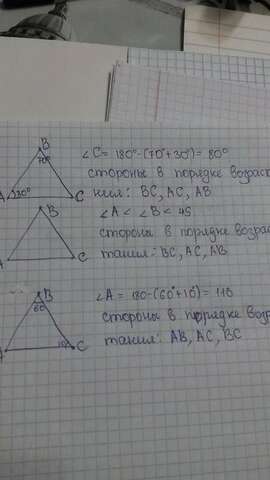 B
70°
∠C = 180° - (70° + 30°) = 80°
стороны в порядке возраст
ния: BC, AC, AB
A 30° C
B
∠A < ∠B < 45
стороны в порядке возра
тания: BC, AC, AB
A C
B
60°
∠A = 180 - (60° + 10°) = 110
стороны в порядке возра
тания: AB, AC, BC
A 10° C